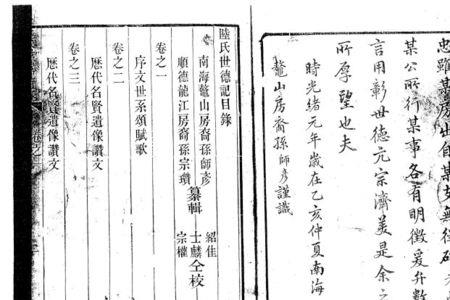 忠雖某房出自某支無從
某公所行某事各有明徵爰弁數
言用彰世德元宗濟美是余之
所厚望也夫
時光緒元年歲在乙亥仲夏南海
鼇山房裔孫師彥謹識
陸氏世德記目錄
南海鼇山房裔孫師彥
順德龍江房裔孫宗瓚
纂輯
紹佳
士麟仝校
宗權
卷之一
序文世系頌賦歌
卷之二
歷代名賢遺像讚文
卷之三
歷代名賢遺像讚文